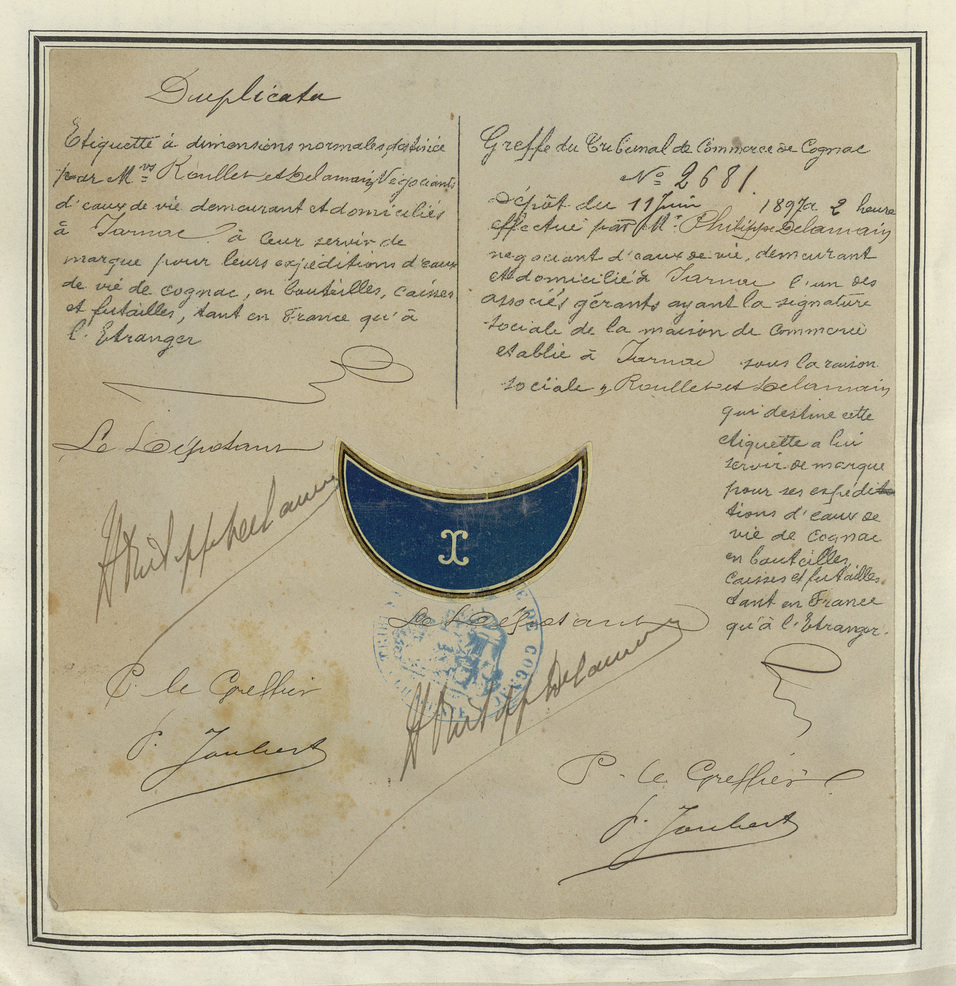 Duplicata
Etiquette à dimensions normales, destinée
par M.rs Roullet et Delamain, Négociants
d'eaux de vie demeurant et domiciliés
à Jarnac à leur servir de
marque pour leurs expéditions d'eaux
de vie de cognac, en bouteilles, caisses
et futailles, tant en France qu'à
l'Etranger
Le Déposant
Philippe Delamain
P. le Greffier
P. Joubert
Greffe du Tribunal de Commerce de Cognac
No 2681.
Dépôt du 11 Juin 1897 à 2 heure
effectué par Mr. Philippe Delamain
negociant d'eaux de vie, demeurant
et domicilié à Jarnac l'un des
associés gérants ayant la signature
sociale de la maison de Commerce
etablie à Jarnac sous la raison
sociale, Roullet et Delamain
qui destine cette
etiquette a lui
servir de marque
pour ses expédi
tions d'eaux de
vie de Cognac
en bouteilles,
caisses et futailles.
tant en France
qu'à l'Etranger.
X
Le Déposant
DE COGNAC
Philippe Delamain
P. le Greffier
P. Joubert